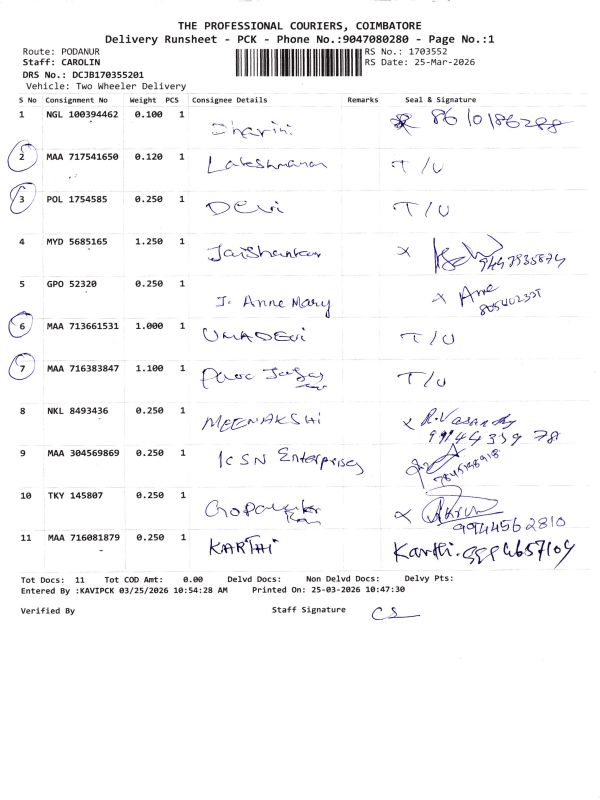 THE PROFESSIONAL COURIERS, COIMBATORE
Delivery Runsheet - PCK - Phone No.:9047080280 - Page No.:1
Route: PODANUR RS No.: 1703552
Staff: CAROLIN RS Date: 25-Mar-2026
DRS No.: DCJB170355201
Vehicle: Two Wheeler Delivery
S No Consignment No Weight PCS Consignee Details Remarks Seal & Signature
1 NGL 100394462 0.100 1 Dharini 8610186288
2 MAA 717541650 0.120 1 Lakshmanan T/U
3 POL 1754585 0.250 1 Devi T/U
4 MYD 5685165 1.250 1 Jaishankar x
5 GPO 52320 0.250 1 J. Anne Mary x Anne
6 MAA 713661531 1.000 1 UMADEVI T/U
7 MAA 716383847 1.100 1 T/U
8 NKL 8493436 0.250 1 MEENAKSHI x R.Vasandhy
9944359 78
9 MAA 304569869 0.250 1 ICSN Enterprises
10 TKY 145807 0.250 1 x
9944562810
11 MAA 716081879 0.250 1 KARTHI Karthi.
Tot Docs: 11 Tot COD Amt: 0.00 Delvd Docs: Non Delvd Docs: Delvy Pts:
Entered By :KAVIPCK 03/25/2026 10:54:28 AM Printed On: 25-03-2026 10:47:30
Verified By Staff Signature CS